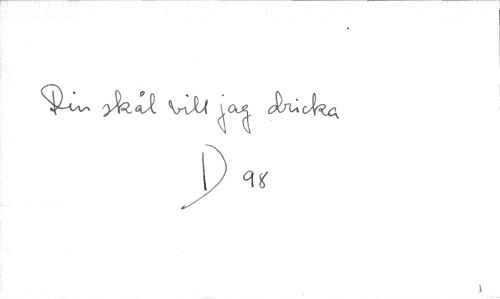 Din skål vill jag dricka
D 98